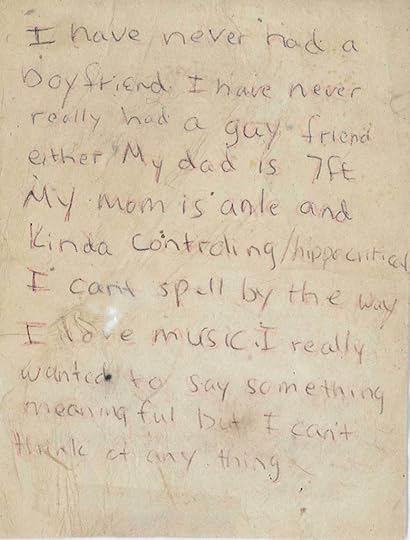 I have never had a
boyfriend. I have never
really had a guy friend
either My dad is 7ft
My mom is anle and
kinda controling/hippocritical
I cant spell by the way
I love music. I really
wanted to say something
meaningful but I can't
think of any thing